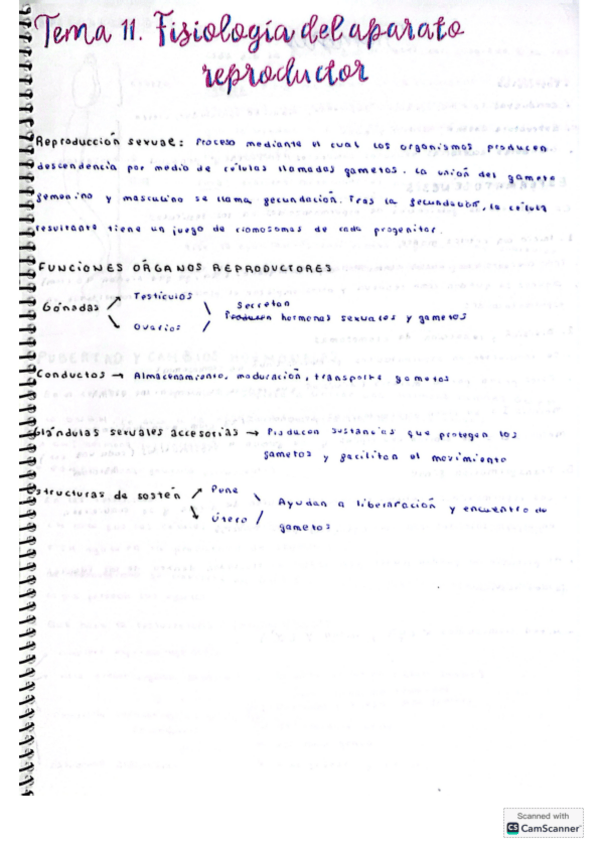 Tema 11. Fisiología del aparato
reproductor
Reproducción sexual: Proceso mediante el cual los organismos producen
descendencia por medio de células llamadas gametos. La unión del gameto
femenino y masculino se llama fecundación. Tras la fecundación, la célula
resultante tiene un juego de cromosomas de cada progenitor.
FUNCIONES ÓRGANOS REPRODUCTORES
Gónadas ↗ Testículos \ Secretan
↘ Ovarios / Producen hormonas sexuales y gametos
Conductos → Almacenamiento, maduración, transporte gametos
Glándulas sexuales accesorias → Producen sustancias que protegen los
gametos y facilitan el movimiento
Estructuras de sostén ↗ Pene \ Ayudan a liberaración y encuentro de
↘ Útero / gametos
Scanned with
CS CamScanner